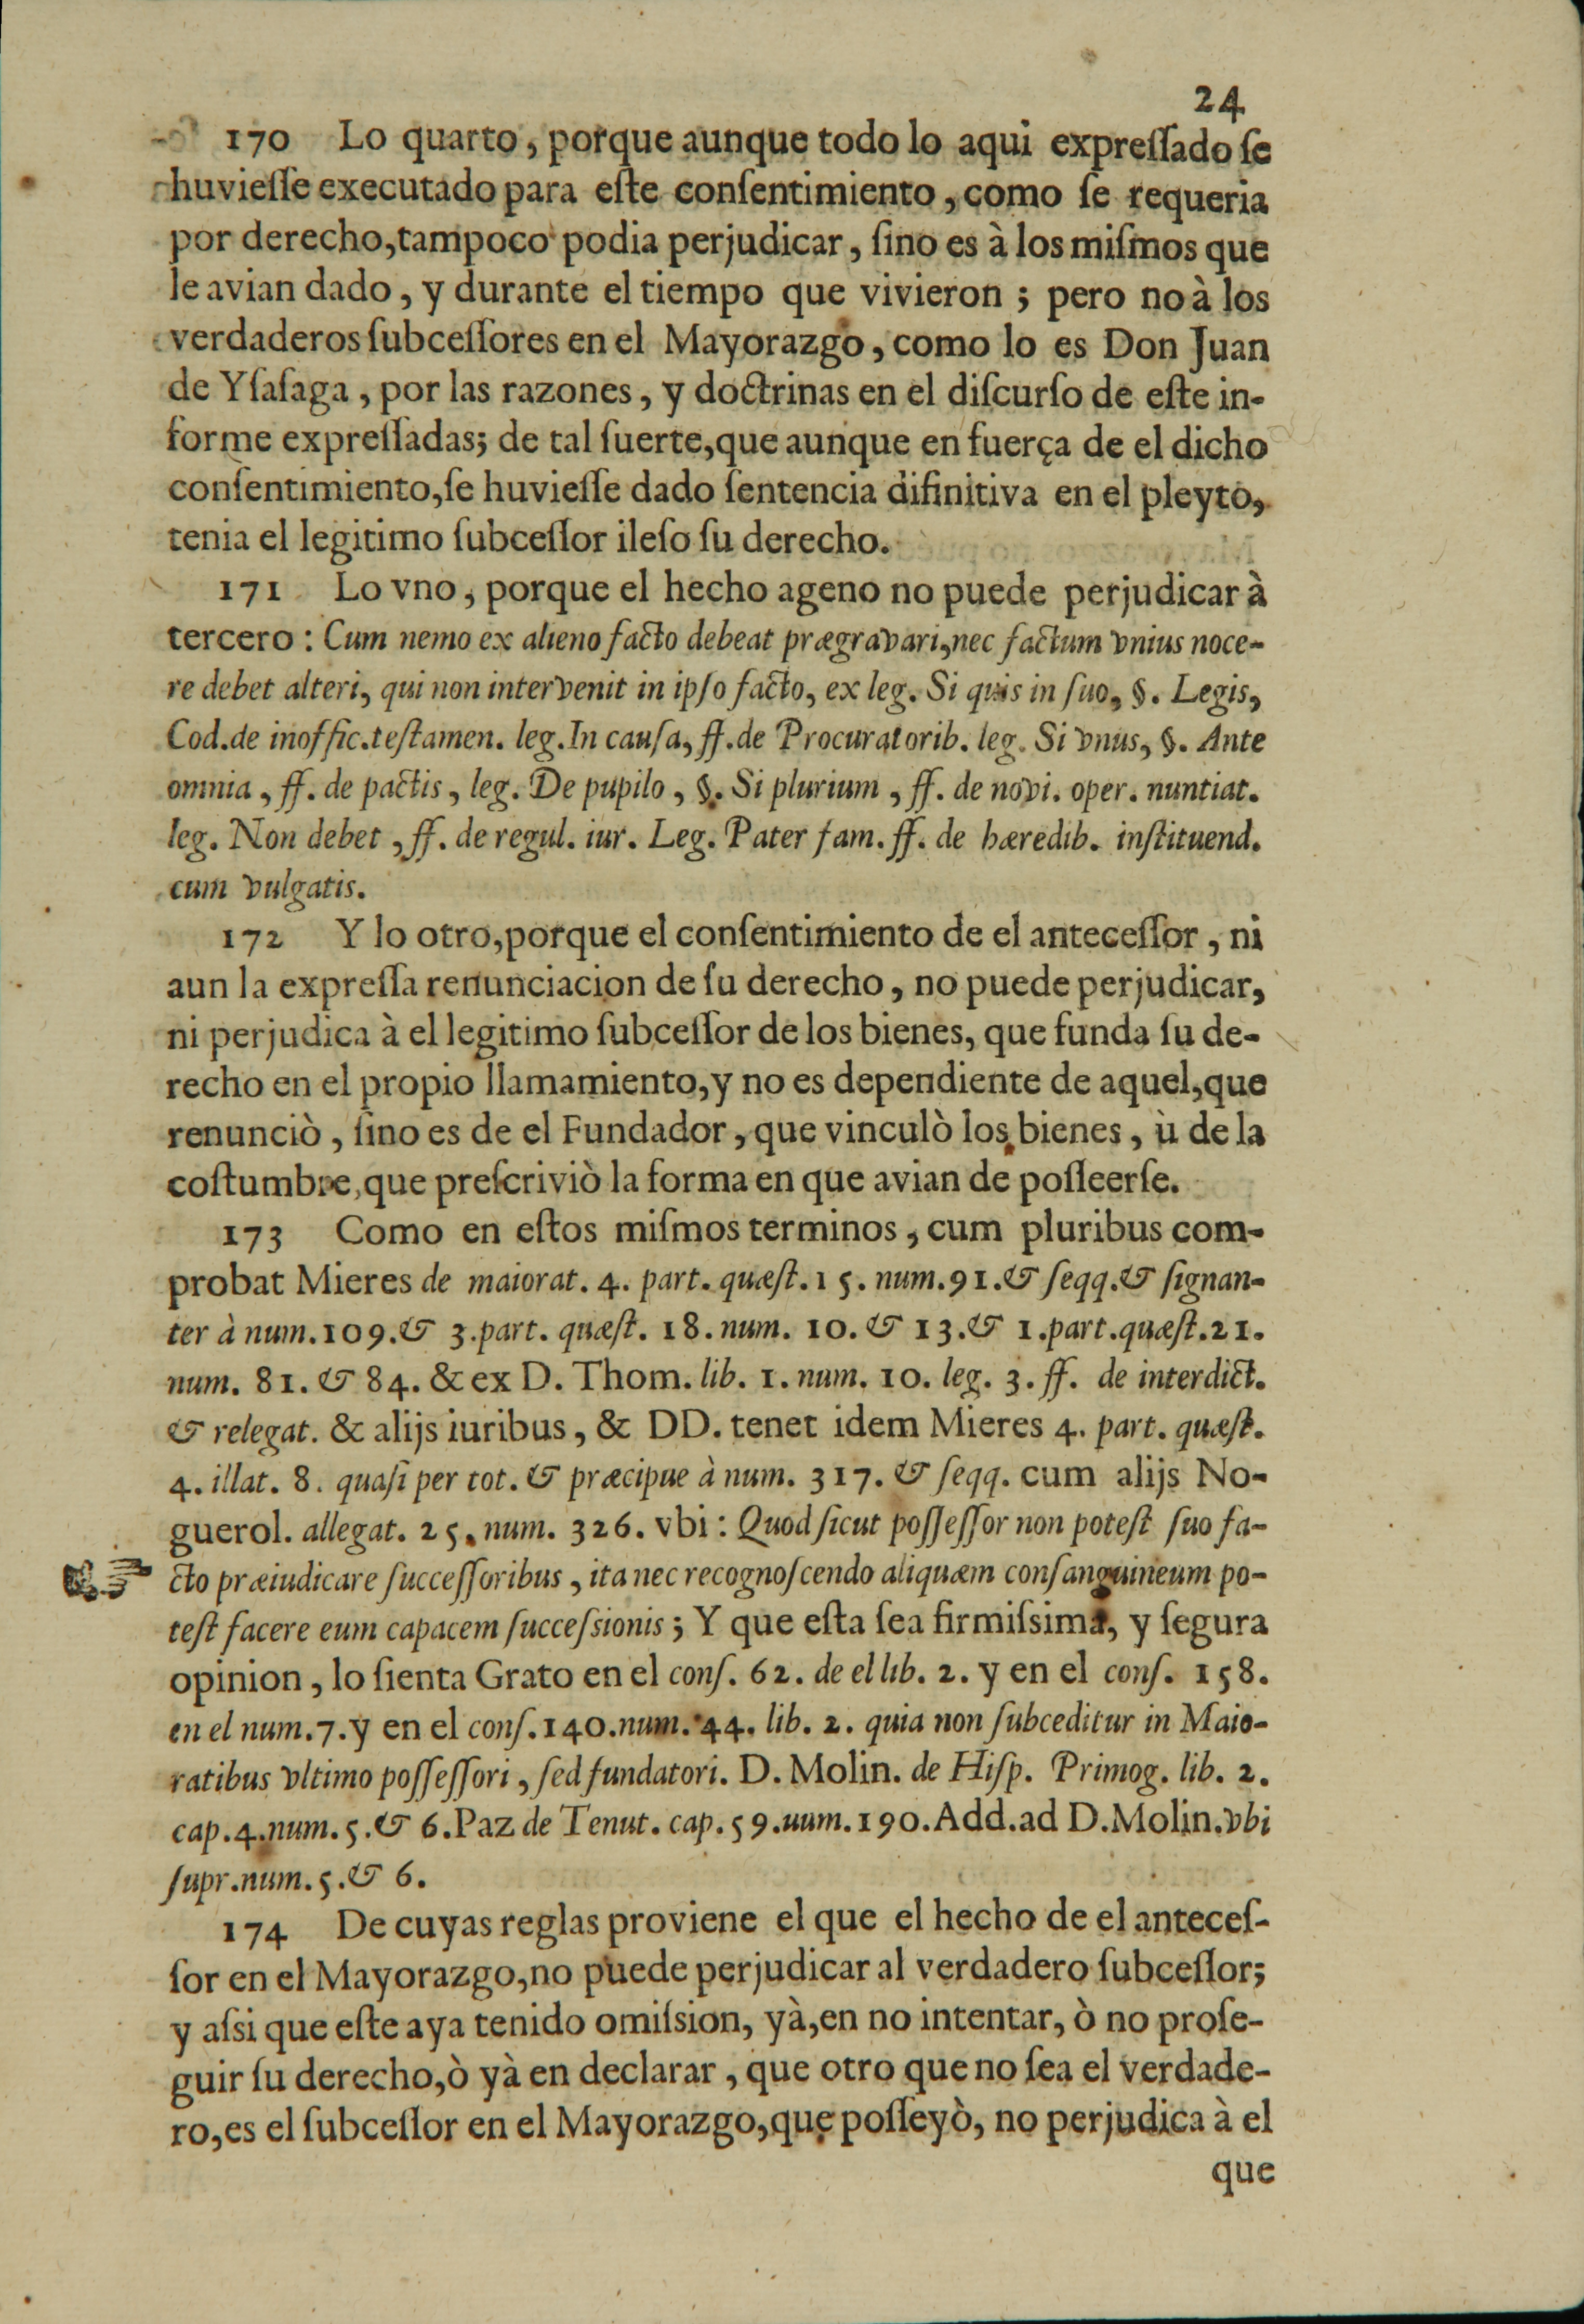 24
170 Lo quarto, porque aunque todo lo aqui expreſſado ſe
huvieſſe executado para eſte conſentimiento, como ſe requeria
por derecho, tampoco podia perjudicar, ſino es à los miſmos que
le avian dado, y durante el tiempo que vivieron; pero no à los
verdaderos ſubceſſores en el Mayorazgo, como lo es Don Juan
de Yſaſaga, por las razones, y doctrinas en el diſcurſo de eſte in-
forme expreſſadas; de tal ſuerte, que aunque en fuerça de el dicho
conſentimiento, ſe huvieſſe dado ſentencia difinitiva en el pleyto,
tenia el legitimo ſubceſſor ileſo ſu derecho.
171 Lo vno, porque el hecho ageno no puede perjudicar à
tercero: Cum nemo ex alieno facto debeat prægravari, nec factum vnius noce-
re debet alteri, qui non intervenit in ipſo facto, ex leg. Si quis in ſuo, §. Legis,
Cod. de inoffic. teſtamen. leg. In cauſa, ff. de Procuratorib. leg. Si vnus, §. Ante
omnia, ff. de pactis, leg. De pupilo, §. Si plurium, ff. de novi. oper. nuntiat.
leg. Non debet, ff. de regul. iur. Leg. Pater fam. ff. de hæredib. inſtituend.
cum vulgatis.
172 Y lo otro, porque el conſentimiento de el anteceſſor, ni
aun la expreſſa renunciacion de ſu derecho, no puede perjudicar,
ni perjudica à el legitimo ſubceſſor de los bienes, que funda ſu de-
recho en el propio llamamiento, y no es dependiente de aquel, que
renunciò, ſino es de el Fundador, que vinculò los bienes, ù de la
coſtumbre, que preſcriviò la forma en que avian de poſſeerſe.
173 Como en eſtos miſmos terminos, cum pluribus com-
probat Mieres de maiorat. 4. part. quæſt. 15. num. 91. & ſeqq. & ſignan-
ter à num. 109. & 3. part. quæſt. 18. num. 10. & 13. & 1. part. quæſt. 21.
num. 81. & 84. & ex D. Thom. lib. 1. num. 10. leg. 3. ff. de interdict.
& relegat. & alijs iuribus, & DD. tenet idem Mieres 4. part. quæſt.
4. illat. 8. quaſi per tot. & præcipue à num. 317. & ſeqq. cum alijs No-
guerol. allegat. 25. num. 326. vbi: Quod ſicut poſſeſſor non poteſt ſuo fa-
cto præiudicare ſucceſſoribus, ita nec recognoſcendo aliquæm conſanguineum po-
teſt facere eum capacem ſucceſsionis; Y que eſta ſea firmiſsima, y ſegura
opinion, lo ſienta Grato en el conſ. 62. de el lib. 2. y en el conſ. 158.
en el num. 7. y en el conſ. 140. num. 44. lib. 2. quia non ſubceditur in Maio-
ratibus vltimo poſſeſſori, ſed fundatori. D. Molin. de Hiſp. Primog. lib. 2.
cap. 4. num. 5. & 6. Paz de Tenut. cap. 59. uum. 190. Add. ad D. Molin. vbi
ſupr. num. 5. & 6.
174 De cuyas reglas proviene el que el hecho de el anteceſ-
ſor en el Mayorazgo, no puede perjudicar al verdadero ſubceſſor;
y aſsi que eſte aya tenido omiſsion, yà, en no intentar, ò no proſe-
guir ſu derecho, ò yà en declarar, que otro que no ſea el verdade-
ro, es el ſubceſſor en el Mayorazgo, que poſſeyò, no perjudica à el
que